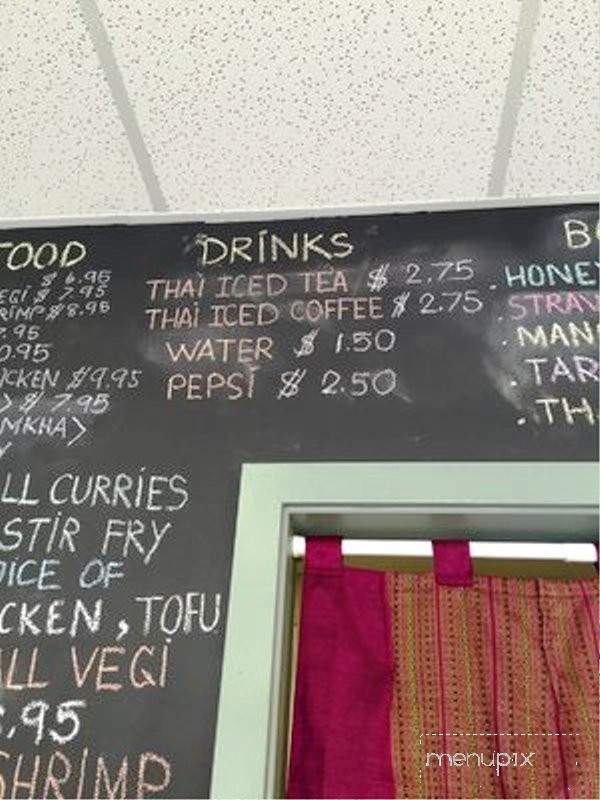 FOOD
$ 6.95
EGI $ 7.95
RIMP $ 8.95
7.95
0.95
ICKEN $ 9.95
> $ 7.95
MKHA>
Y
LL CURRIES
STIR FRY
OICE OF
CKEN, TOFU
ALL VEGI
.95
SHRIMP
DRINKS
THAI ICED TEA $ 2.75
THAI ICED COFFEE $ 2.75
WATER $ 1.50
PEPSI $ 2.50
B
. HONEY
. STRAW
. MAN
. TAR
. TH
menupix